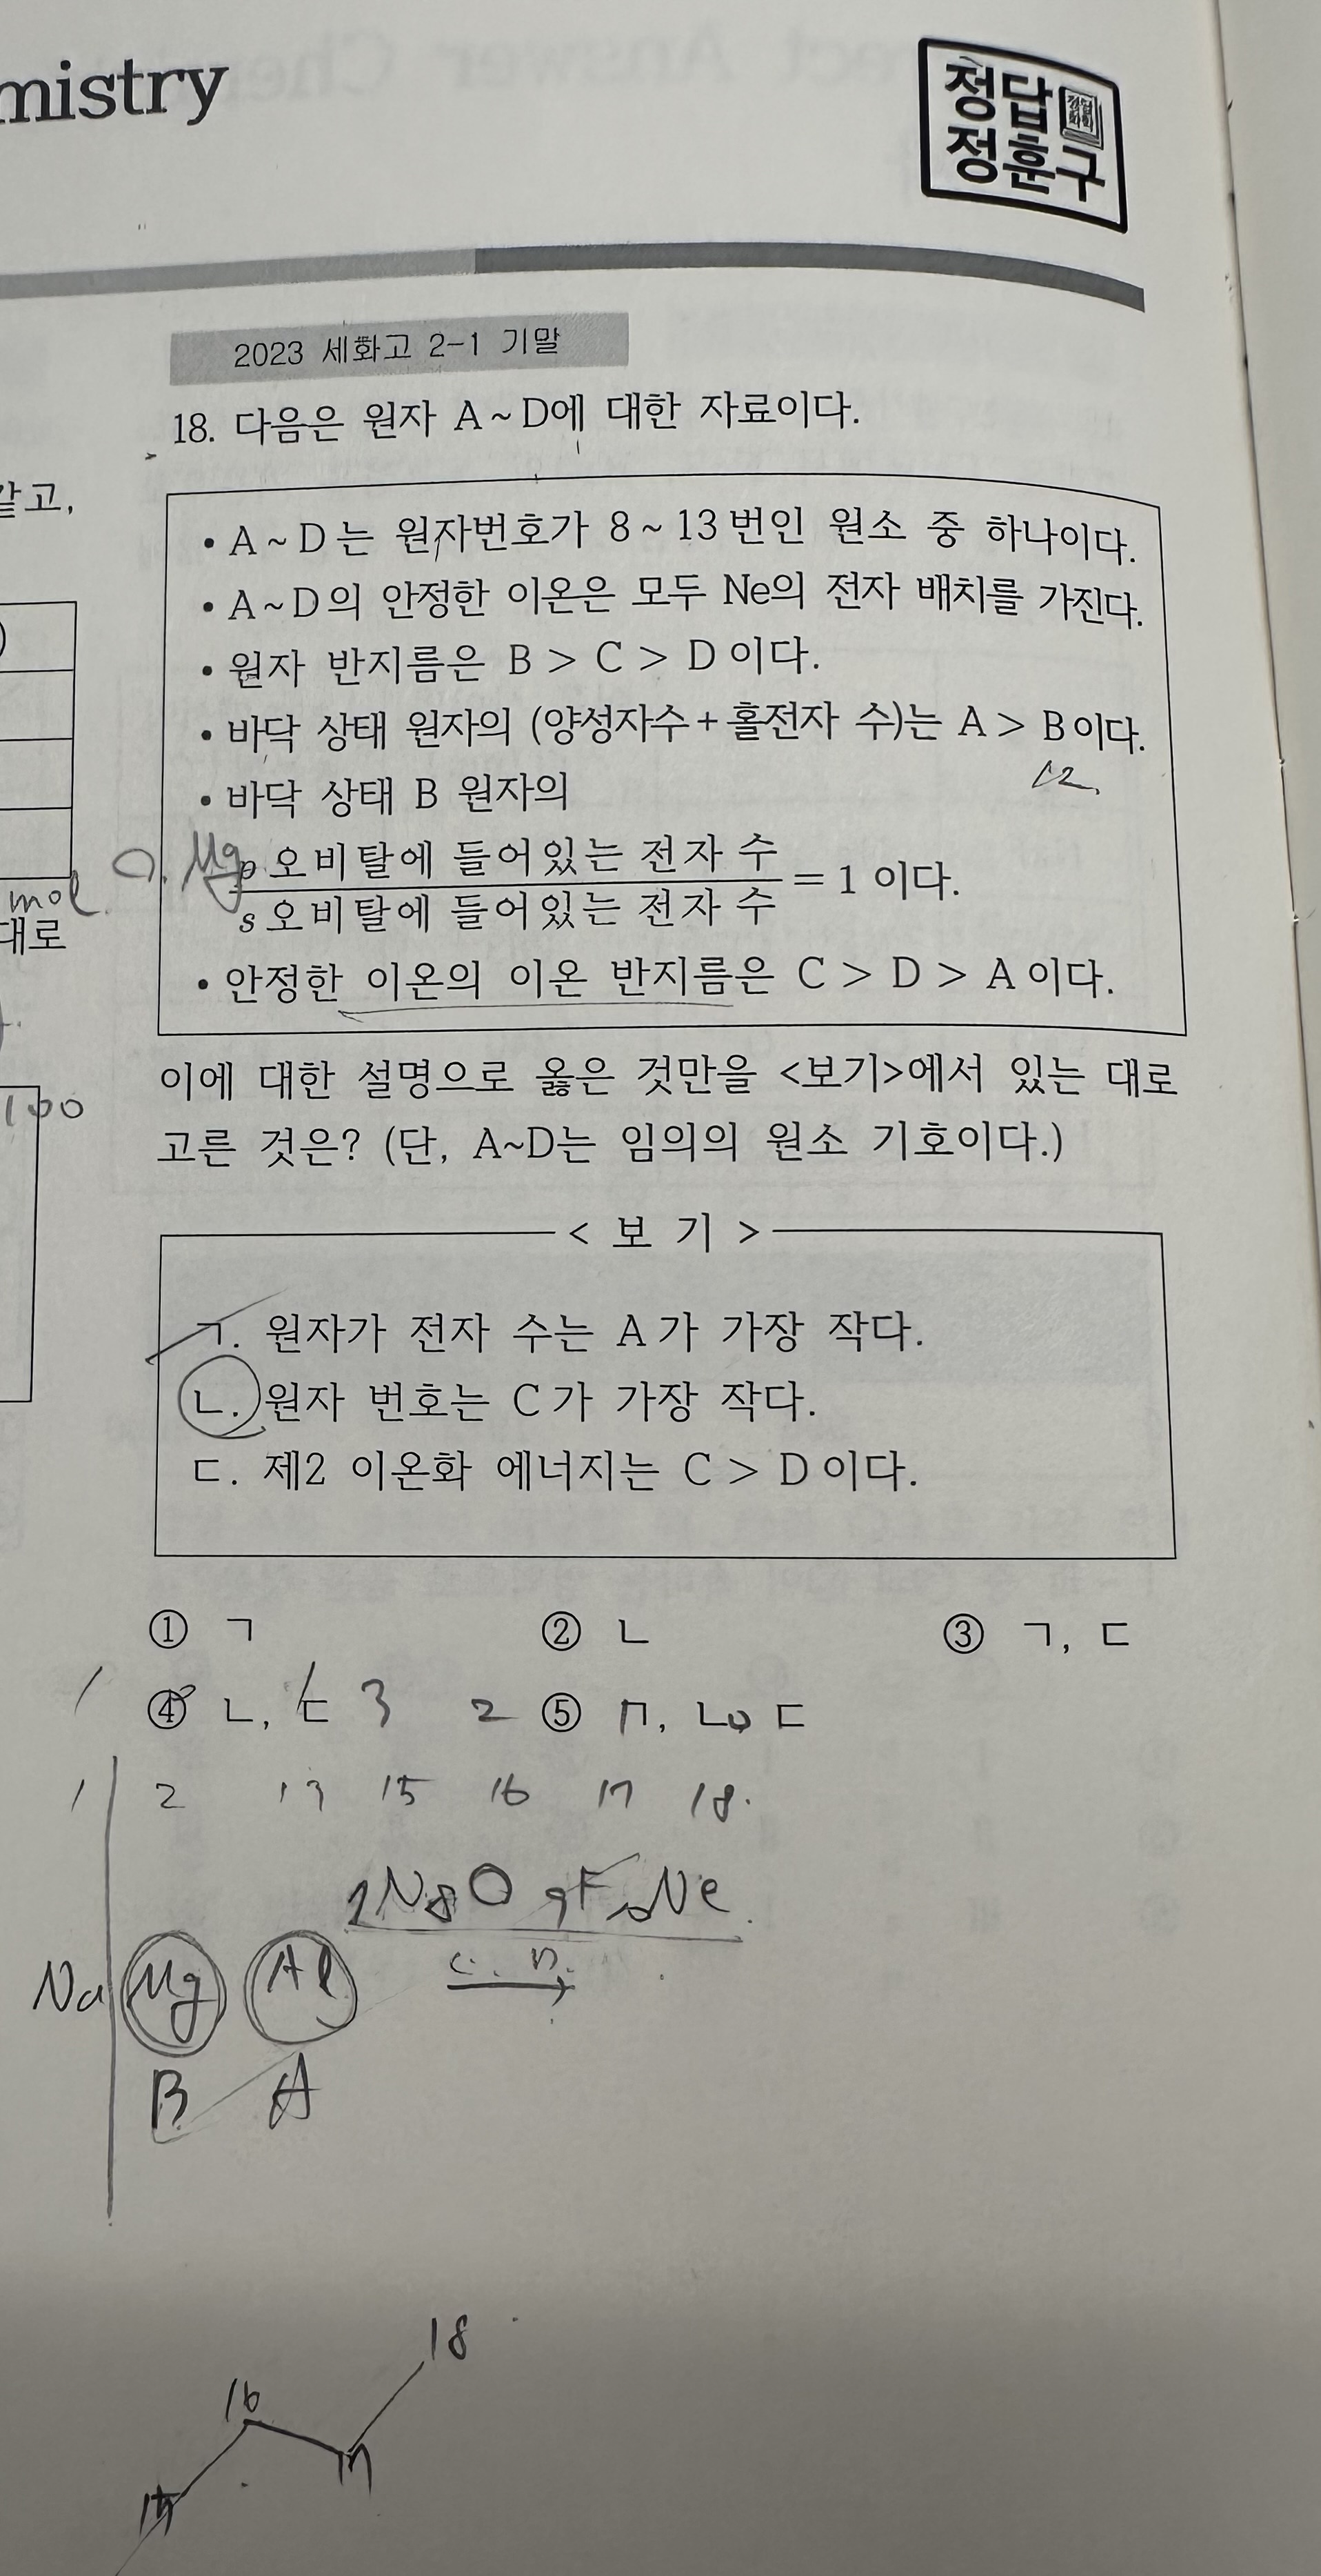 mistry
정답
정훈구
2023 세화고 2-1 기말
18. 다음은 원자 A ~ D에 대한 자료이다.
같고,
• A ~ D는 원자번호가 8 ~ 13번인 원소 중 하나이다.
• A~D의 안정한 이온은 모두 Ne의 전자 배치를 가진다.
• 원자 반지름은 B > C > D이다.
• 바닥 상태 원자의 (양성자수+홀전자 수)는 A > B이다.
12
• 바닥 상태 B 원자의
Mg
p오비탈에 들어있는 전자 수
s오비탈에 들어있는 전자 수
= 1 이다.
mol
대로
• 안정한 이온의 이온 반지름은 C > D > A이다.
100
이에 대한 설명으로 옳은 것만을 <보기>에서 있는 대로
고른 것은? (단, A~D는 임의의 원소 기호이다.)
< 보 기 >
ㄱ. 원자가 전자 수는 A가 가장 작다.
ㄴ. 원자 번호는 C가 가장 작다.
ㄷ. 제2 이온화 에너지는 C > D이다.
① ㄱ ② ㄴ ③ ㄱ, ㄷ
④ ㄴ, ㄷ 3 2 ⑤ ㄱ, ㄴ, ㄷ
1 2 13 15 16 17 18
N 8O 9F Ne
C. D.
Na Mg Al
B A
18
16
17